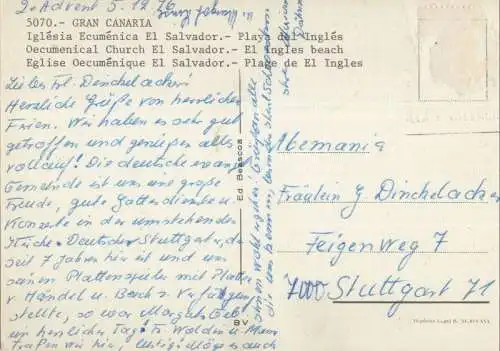 2. Advent 5.12.76
5070.- GRAN CANARIA
Iglésia Ecuménica El Salvador.- Playa del Inglés
Oecumenical Church El Salvador.- El Ingles beach
Eglise Oecuménique El Salvador.- Plage de El Ingles
Liebes Frl. Dinchelacker!
Herzliche Grüße von herrlichen
Ferien. Wir haben es sehr gut
getroffen und genießen alles
vollauf! Die deutsche evang.
Gemeinde ist uns eine große
Freude, gute Gottesdienste u.
Konzerte in der umstehenden
Kirche. Deutscher Stuttgarter, der
seit 7 Jahren hier ist und uns
seinen Plattenspieler mit Platten
v. Händel u. Bach z. Verfügung
stellte, so war
ein herrlicher Tag!
trafen wir hier, lustig! Möge es auch
Ihnen wohl ergehen. Grüßen alle
die uns kennen,
Ed Beascoa
BV
Alemania
Fräulein J. Dinchelacker
Feigenweg 7
7000 Stuttgart 71